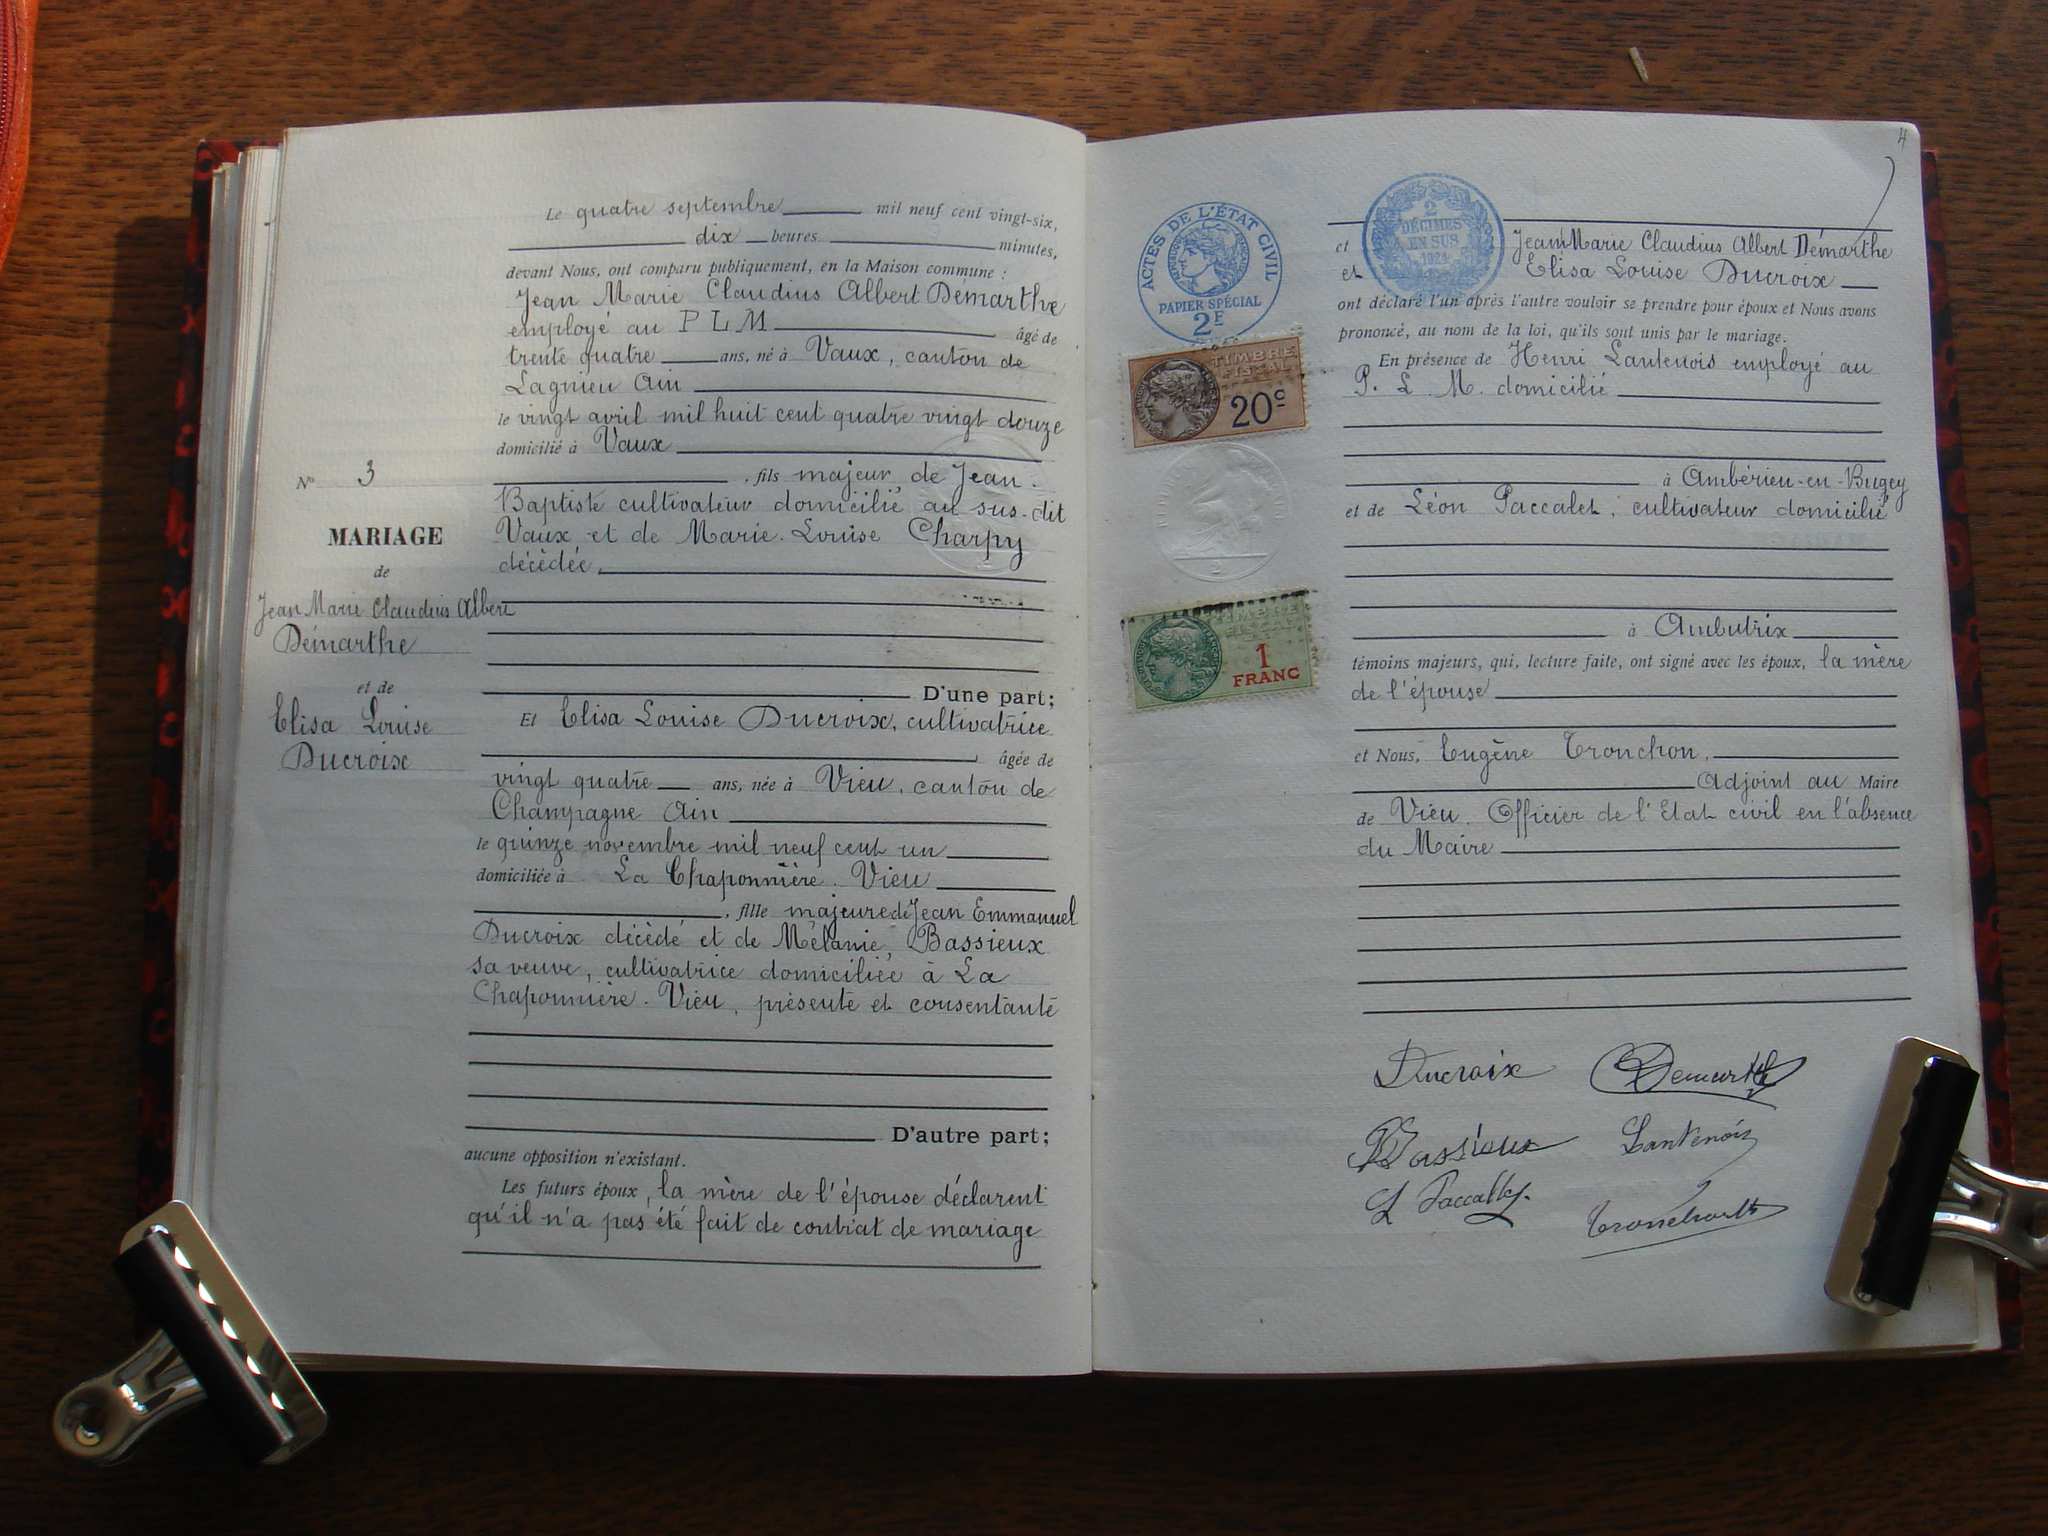 Le quatre septembre mil neuf cent vingt-six,
dix heures minutes,
devant Nous, ont comparu publiquement, en la Maison commune :
Jean Marie Claudius Albert Démarthe
employé au P L M âgé de
trente quatre ans, né à Vaux, canton de
Lagnieu Ain
le vingt avril mil huit cent quatre vingt douze
domicilié à Vaux
, fils majeur de Jean-
Baptiste cultivateur domicilié au sus-dit
Vaux et de Marie-Louise Charpy
décédée,
D'une part;
Et Elisa Louise Ducroix, cultivatrice
âgée de
vingt quatre ans, née à Vieu, canton de
Champagne Ain
le quinze novembre mil neuf cent un
domiciliée à La Chaponnière. Vieu
, fille majeure de Jean Emmanuel
Ducroix décédé et de Mélanie Bassieux
sa veuve, cultivatrice domiciliée à La
Chaponnière. Vieu, présente et consentante
D'autre part;
aucune opposition n'existant.
Les futurs époux, la mère de l'épouse déclarent
qu'il n'a pas été fait de contrat de mariage
Nº 3
MARIAGE
de
Jean Marie Claudius Albert
Démarthe
et de
Elisa Louise
Ducroix
4
ACTES DE L'ÉTAT CIVIL
PAPIER SPÉCIAL
2F
2
DÉCIMES
EN SUS
TIMBRE
FISCAL
20c
1
FRANC
et Jean Marie Claudius Albert Démarthe
et Elisa Louise Ducroix
ont déclaré l'un après l'autre vouloir se prendre pour époux et Nous avons
prononcé, au nom de la loi, qu'ils sont unis par le mariage.
En présence de Henri Lantenois employé au
P. L. M. domicilié
à Ambérieu-en-Bugey
et de Léon Paccalet, cultivateur domicilié
à Ambutrix
témoins majeurs, qui, lecture faite, ont signé avec les époux, la mère
de l'épouse
et Nous, Eugène Tronchon,
Adjoint au Maire
de Vieu. Officier de l'Etat civil en l'absence
du Maire
Ducroix Demarthe
Bassieux Lantenois
L Paccallet